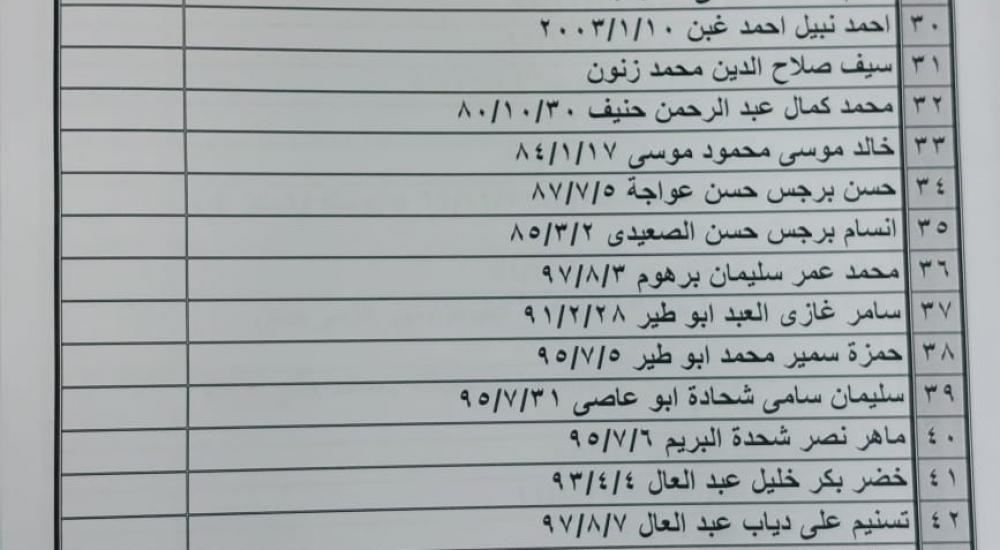 ٣٠ احمد نبيل احمد غبن ٢٠٠٣/١/١٠
٣١ سيف صلاح الدين محمد زنون
٣٢ محمد كمال عبد الرحمن حنيف ٨٠/١٠/٣٠
٣٣ خالد موسى محمود موسى ٨٤/١/١٧
٣٤ حسن برجس حسن عواجة ٨٧/٧/٥
٣٥ انسام برجس حسن الصعيدى ٨٥/٣/٢
٣٦ محمد عمر سليمان برهوم ٩٧/٨/٣
٣٧ سامر غازى العبد ابو طير ٩١/٢/٢٨
٣٨ حمزة سمير محمد ابو طير ٩٥/٧/٥
٣٩ سليمان سامى شحادة ابو عاصى ٩٥/٧/٣١
٤٠ ماهر نصر شحدة البريم ٩٥/٧/٦
٤١ خضر بكر خليل عبد العال ٩٣/٤/٤
٤٢ تسنيم على دياب عبد العال ٩٧/٨/٧